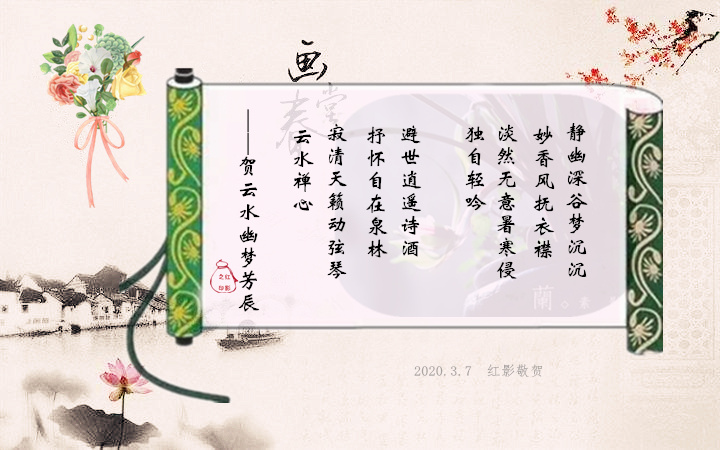 画
堂
春
静幽深谷梦沉沉
妙香风抚衣襟
淡然无意暑寒侵
独自轻吟
避世逍遥诗酒
抒怀自在泉林
寂清天籁动弦琴
云水禅心
——贺云水幽梦芳辰
红影
之印
蘭。素
2020.3.7 红影敬贺